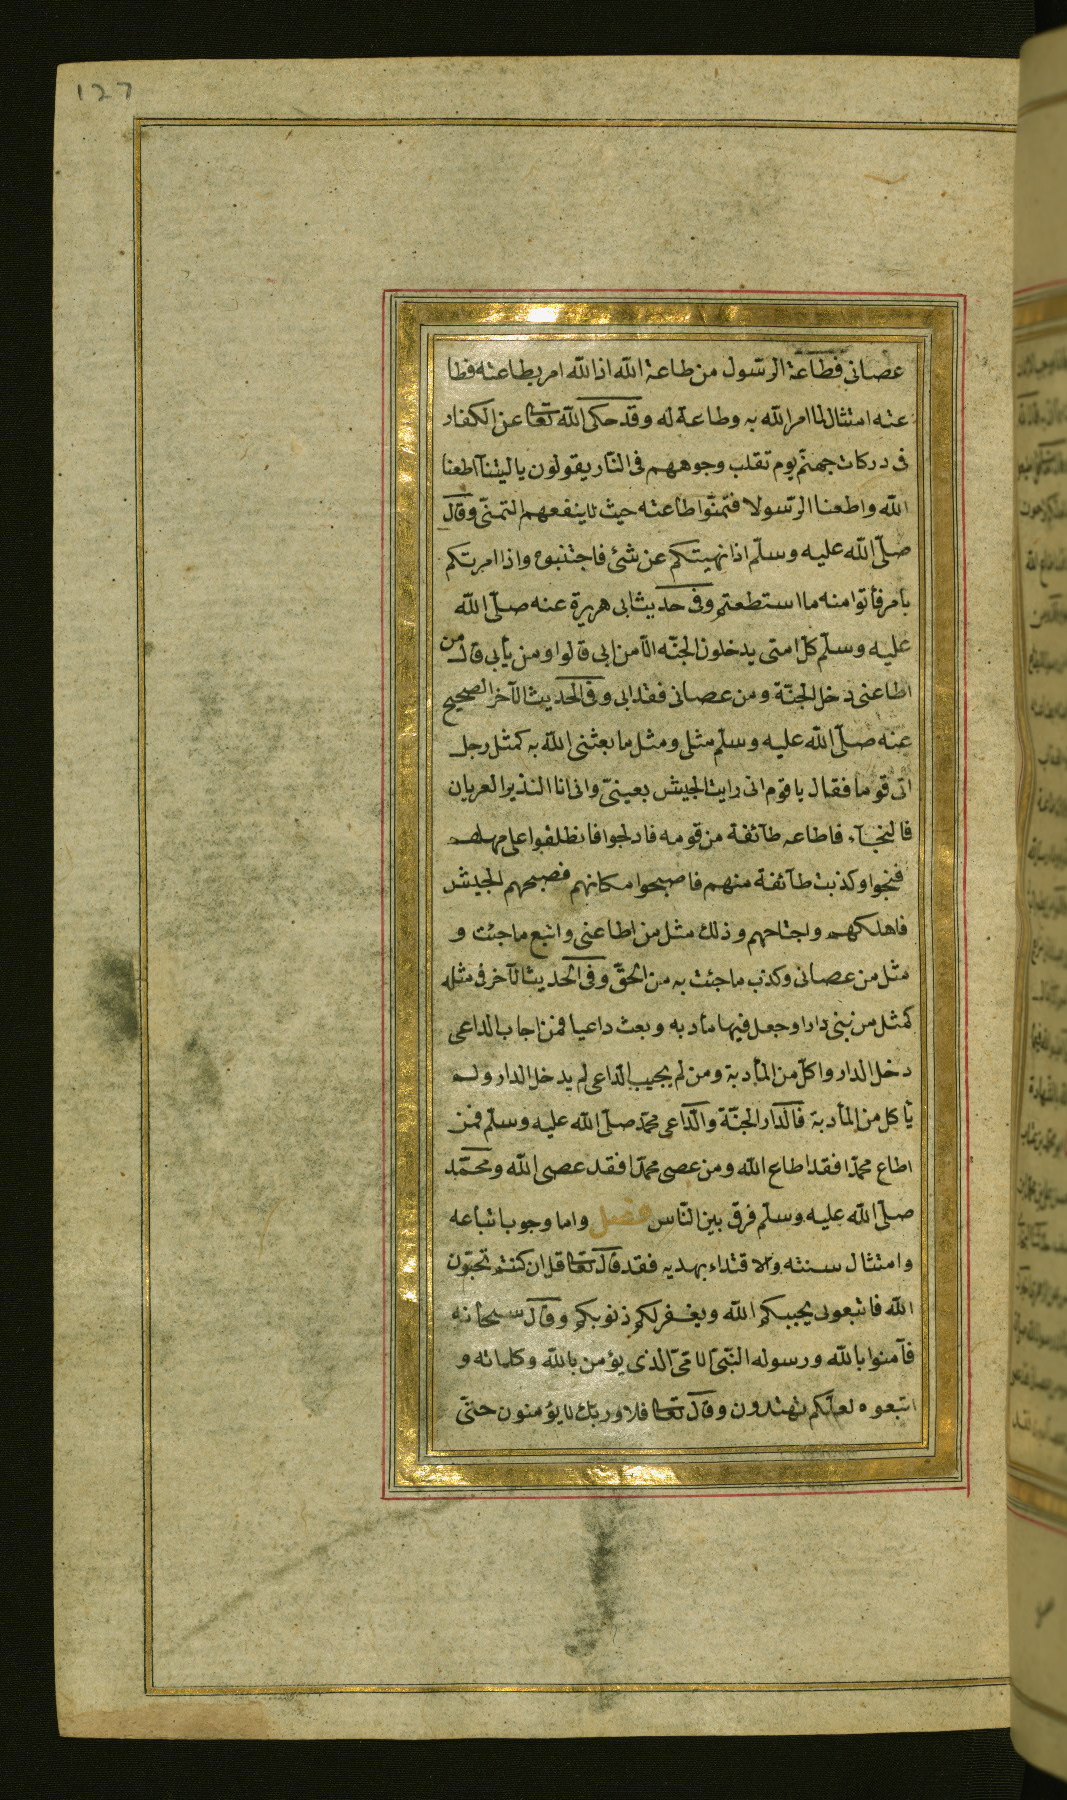 127
عصانى فطاعة الرسول من طاعة الله اذ الله امر بطاعته فطا
عته امتثال لما امر الله به وطاعة له وقد حكى الله تعا عن الكفار
فى دركات جهنم يوم تقلب وجوههم فى النار يقولون ياليتنا اطعنا
الله واطعنا الرسولا فتمنّوا طاعته حيث لا ينفعهم التمنّى وقال
صلّى الله عليه وسلّم اذا نهيتكم عن شئ فاجتنبوه واذا امرتكم
بأمر فأتوا منه ما استطعتم وفى حديث ابى هريرة عنه صلّى الله
عليه وسلّم كلّ امتى يدخلون الجنّه الّا من ابى قالوا ومن يأبى قال من
اطاعنى دخل الجنّة ومن عصانى فقد ابى وفى الحديث الآخر الصحيح
عنه صلّى الله عليه وسلّم مثلى ومثل ما بعثنى الله به كمثل رجل
اتى قوما فقال يا قوم انى رايت الجيش بعينىّ وانى انا النذير العريان
فالنجآء فاطاعه طآئفة من قومه فادلجوا فانطلقوا على مهلهم
فنجوا وكذبت طآئفة منهم فاصبحوا مكانهم فصبحهم الجيش
فاهلكهم واجتاحهم وذلك مثل من اطاعنى واتبع ما جئت و
مثل من عصانى وكذب ما جئت به من الحقّ وفى الحديث الآخر فى مثله
كمثل من بنى دارا وجعل فيها مأدبه وبعث داعيا فمن اجاب الداعى
دخل الدار واكل من المأدبة ومن لم يجيب الدّاعى لم يدخل الدار ولم
يأكل من المأدبة فالدّار الجنّة والدّاعى محمّد صلّى الله عليه وسلّم فمن
اطاع محمّدا فقد اطاع الله ومن عصى محمّدا فقد عصى الله ومحمّد
صلّى الله عليه وسلّم فرق بين النّاس فصل واما وجوب اتباعه
وامتثال سنته والاقتداء بهديه فقد قال تعا قل ان كنتم تحبّون
الله فاتبعونى يحببكم الله ويغفر لكم ذنوبكم وقال سبحانه
فآمنوا بالله ورسوله النّبىّ الامّىّ الذى يؤمن بالله وكلماته و
اتبعوه لعلّكم تهتدون وقال تعا فلا وربّك لا يؤمنون حتّى